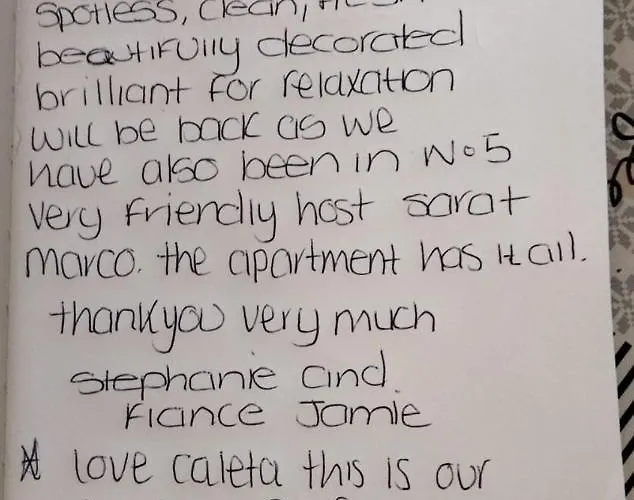 spotless, clean,
beautifully decorated
brilliant for relaxation
will be back as we
have also been in No5
very friendly host sarat
marco. the apartment has it all.
thankyou very much
Stephanie and
Fiance Jamie
love caleta this is our